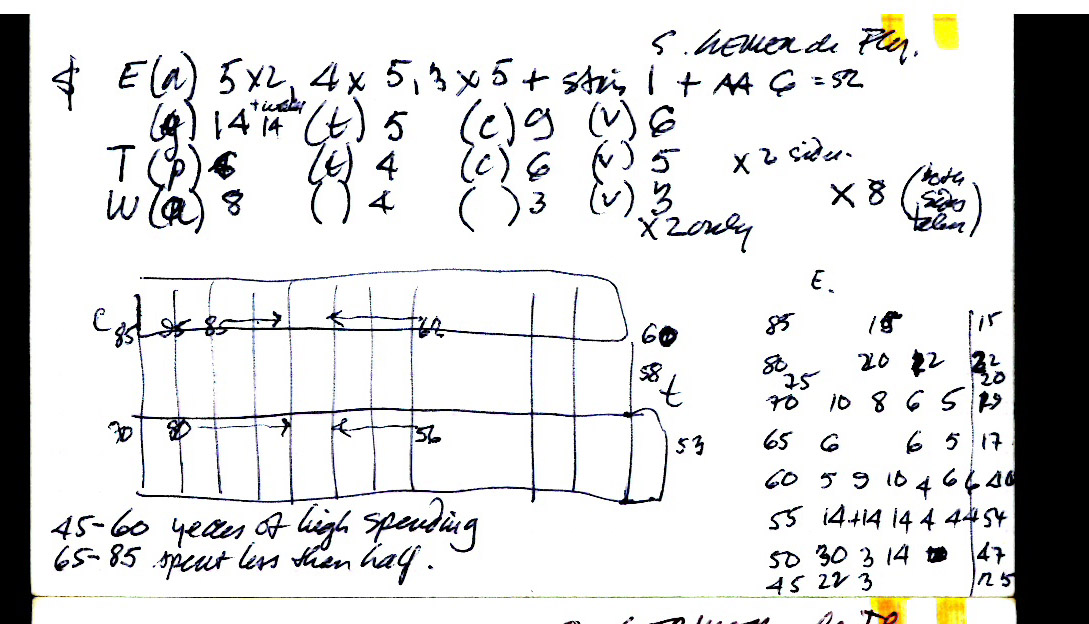 E(a) 5x2, 4x5, 3x5 + 1 + AA 6 = 52
14 14 (t) 5 (c) 9 (v) 6
T (p) 6 (t) 4 (c) 6 (v) 5 x 2 sides.
W (a) 8 ( ) 4 ( ) 3 (v) 3 x 8 (both sides taken)
x 2 only
E.
c 85 85 62 60
58 t
70 80 56 53
85 15
80 20 22 22
75 20
70 10 8 6 5 29
65 6 6 5 17
60 5 9 10 4 6 6 40
55 14+14 14 4 4 4 54
50 30 3 14 47
45 22 3 25
45-60 years of high spending
65-85 spent less than half.